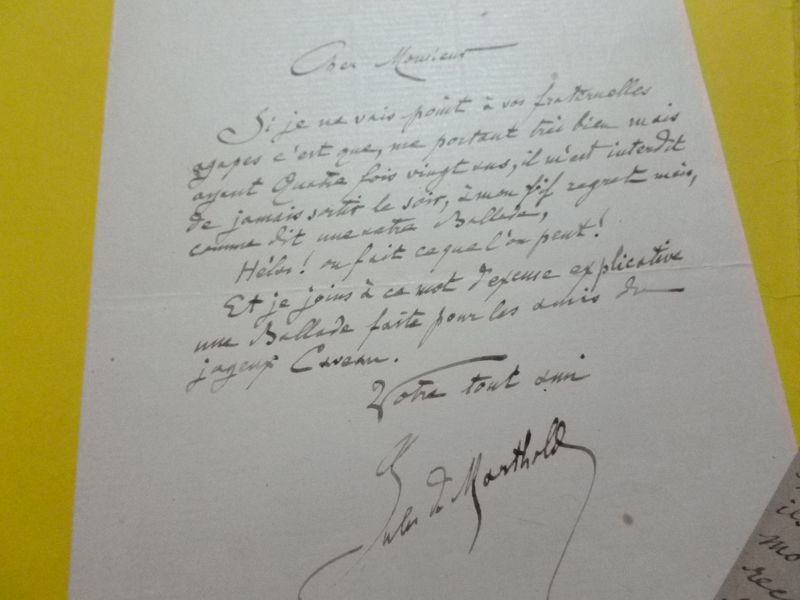 Cher Monsieur
Si je ne vais point à vos fraternelles
agapes c'est que, me portant très bien mais
ayant Quatre fois vingt ans, il m'est interdit
de jamais sortir le soir, à mon vif regret mais,
comme dit une autre Ballade,
Hélas! on fait ce que l'on peut!
Et je joins à ce mot d'excuse explicative
une Ballade faite pour les amis du
joyeux Caveau.
Votre tout ami
Jules de Marthold